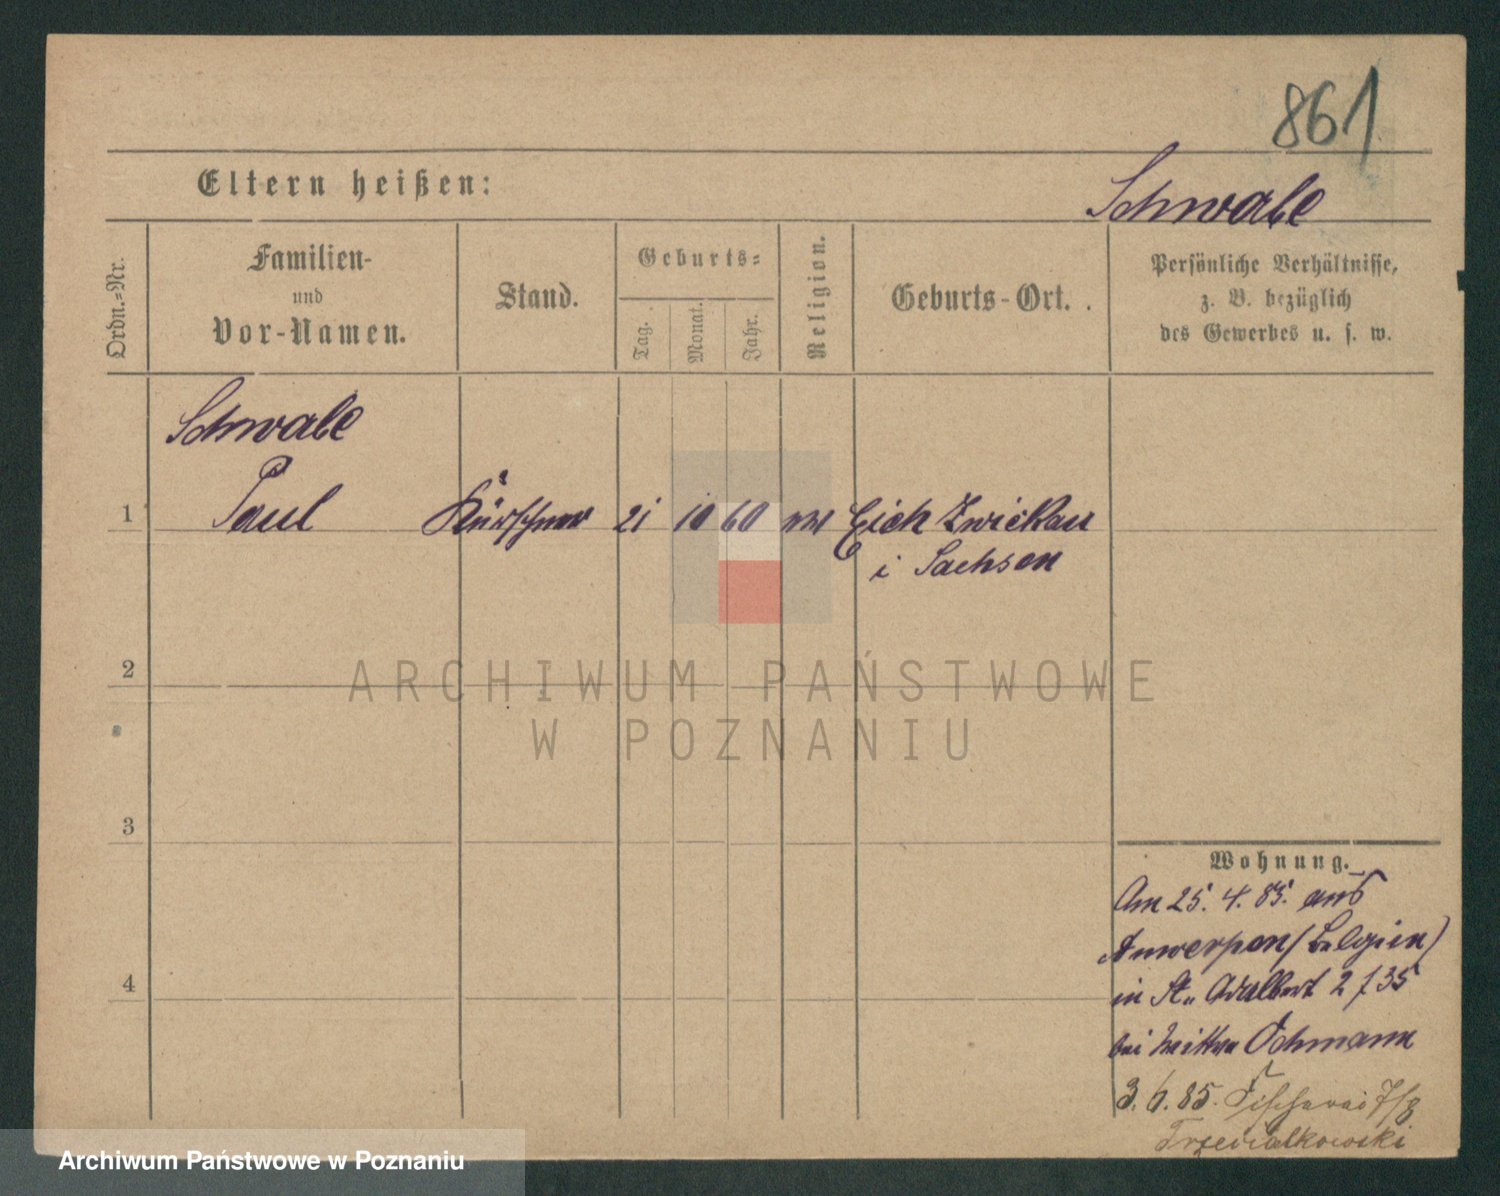 861
Eltern heißen:
Schwabe
Ordn.=Nr.
Familien-
und
Vor-Namen.
Stand.
Geburts=
Tag.
Monat.
Jahr.
Religion.
Geburts-Ort.
Persönliche Verhältnisse,
z. B. bezüglich
des Gewerbes u. s. w.
Schwabe
1 Paul Kürschner 21 10 60 Eich Zwickau
i Sachsen
2
ARCHIWUM PAŃSTWOWE
W POZNANIU
3
Wohnung.
Am 25. 4. 85. aus
Antwerpen (Belgien)
4
in St. Adalbert 2 / 35
bei Wittwe Ochmann
3. 6. 85. Fischerei 7/8
Trzecialkowski
Archiwum Państwowe w Poznaniu